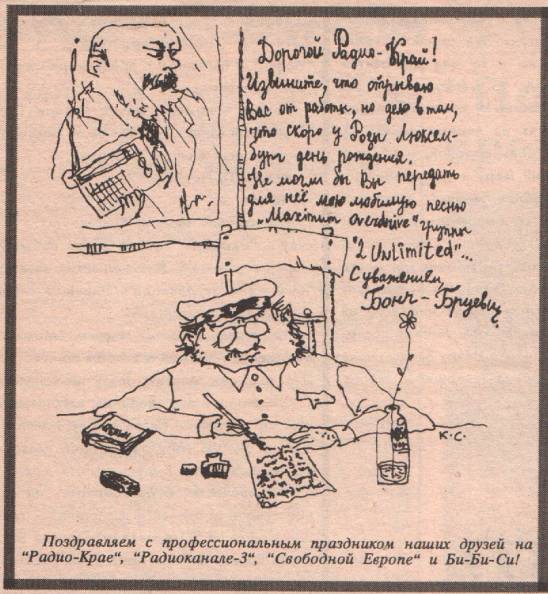 Дорогой Радио-Край!
Извините, что отрываю
Вас от работы, но дело в том,
что скоро у Розы Люксем-
бург день рождения.
Не могли бы Вы передать
для неё мою любимую песню
„Maximum Overdrive“ группы
"2 Unlimited"...
С уважением,
Бонч-Бруевич.
К.С.
Поздравляем с профессиональным праздником наших друзей на
"Радио-Крае", "Радиоканале-3", "Свободной Европе" и Би-Би-Си!